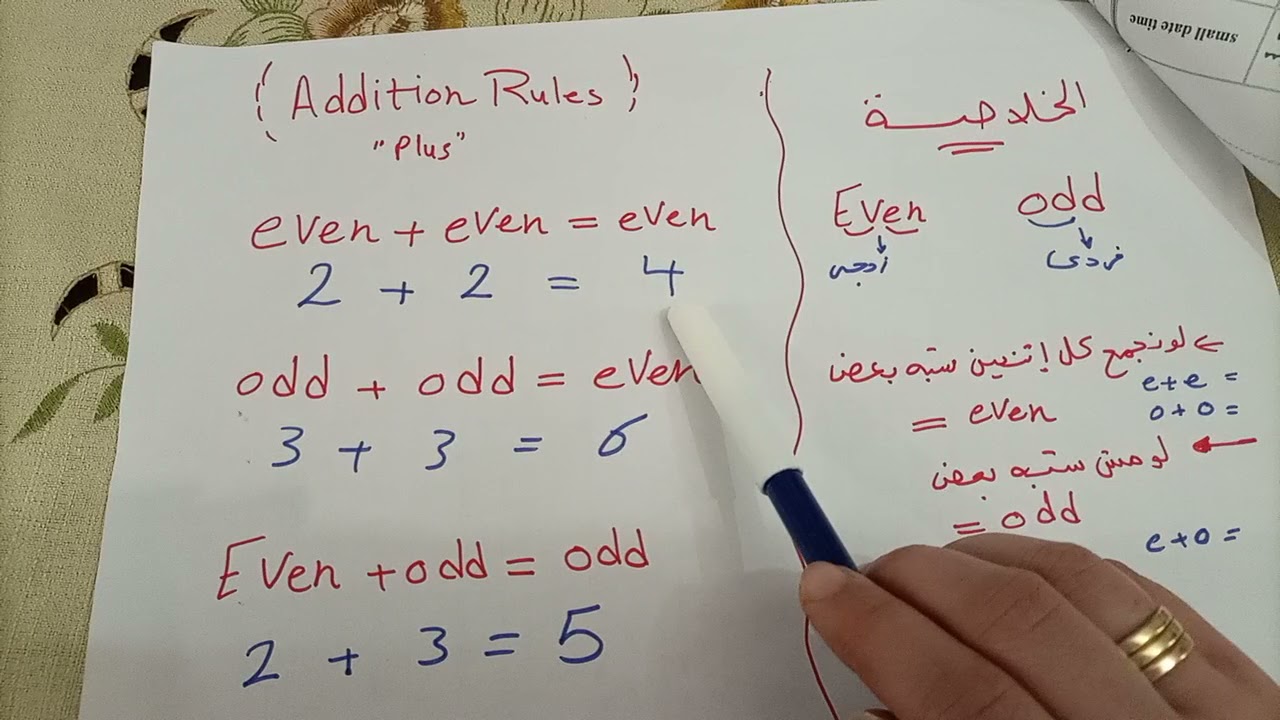 (Addition Rules)
"Plus"
even + even = even
2 + 2 = 4
odd + odd = even
3 + 3 = 6
Even + odd = odd
2 + 3 = 5
الخلاصة
Even odd
زوجى فردى
← لو نجمع كل إتنين شبه بعض
e + e =
o + o =
= even
← لو مش شبه بعض
= odd
e + o =
small date time